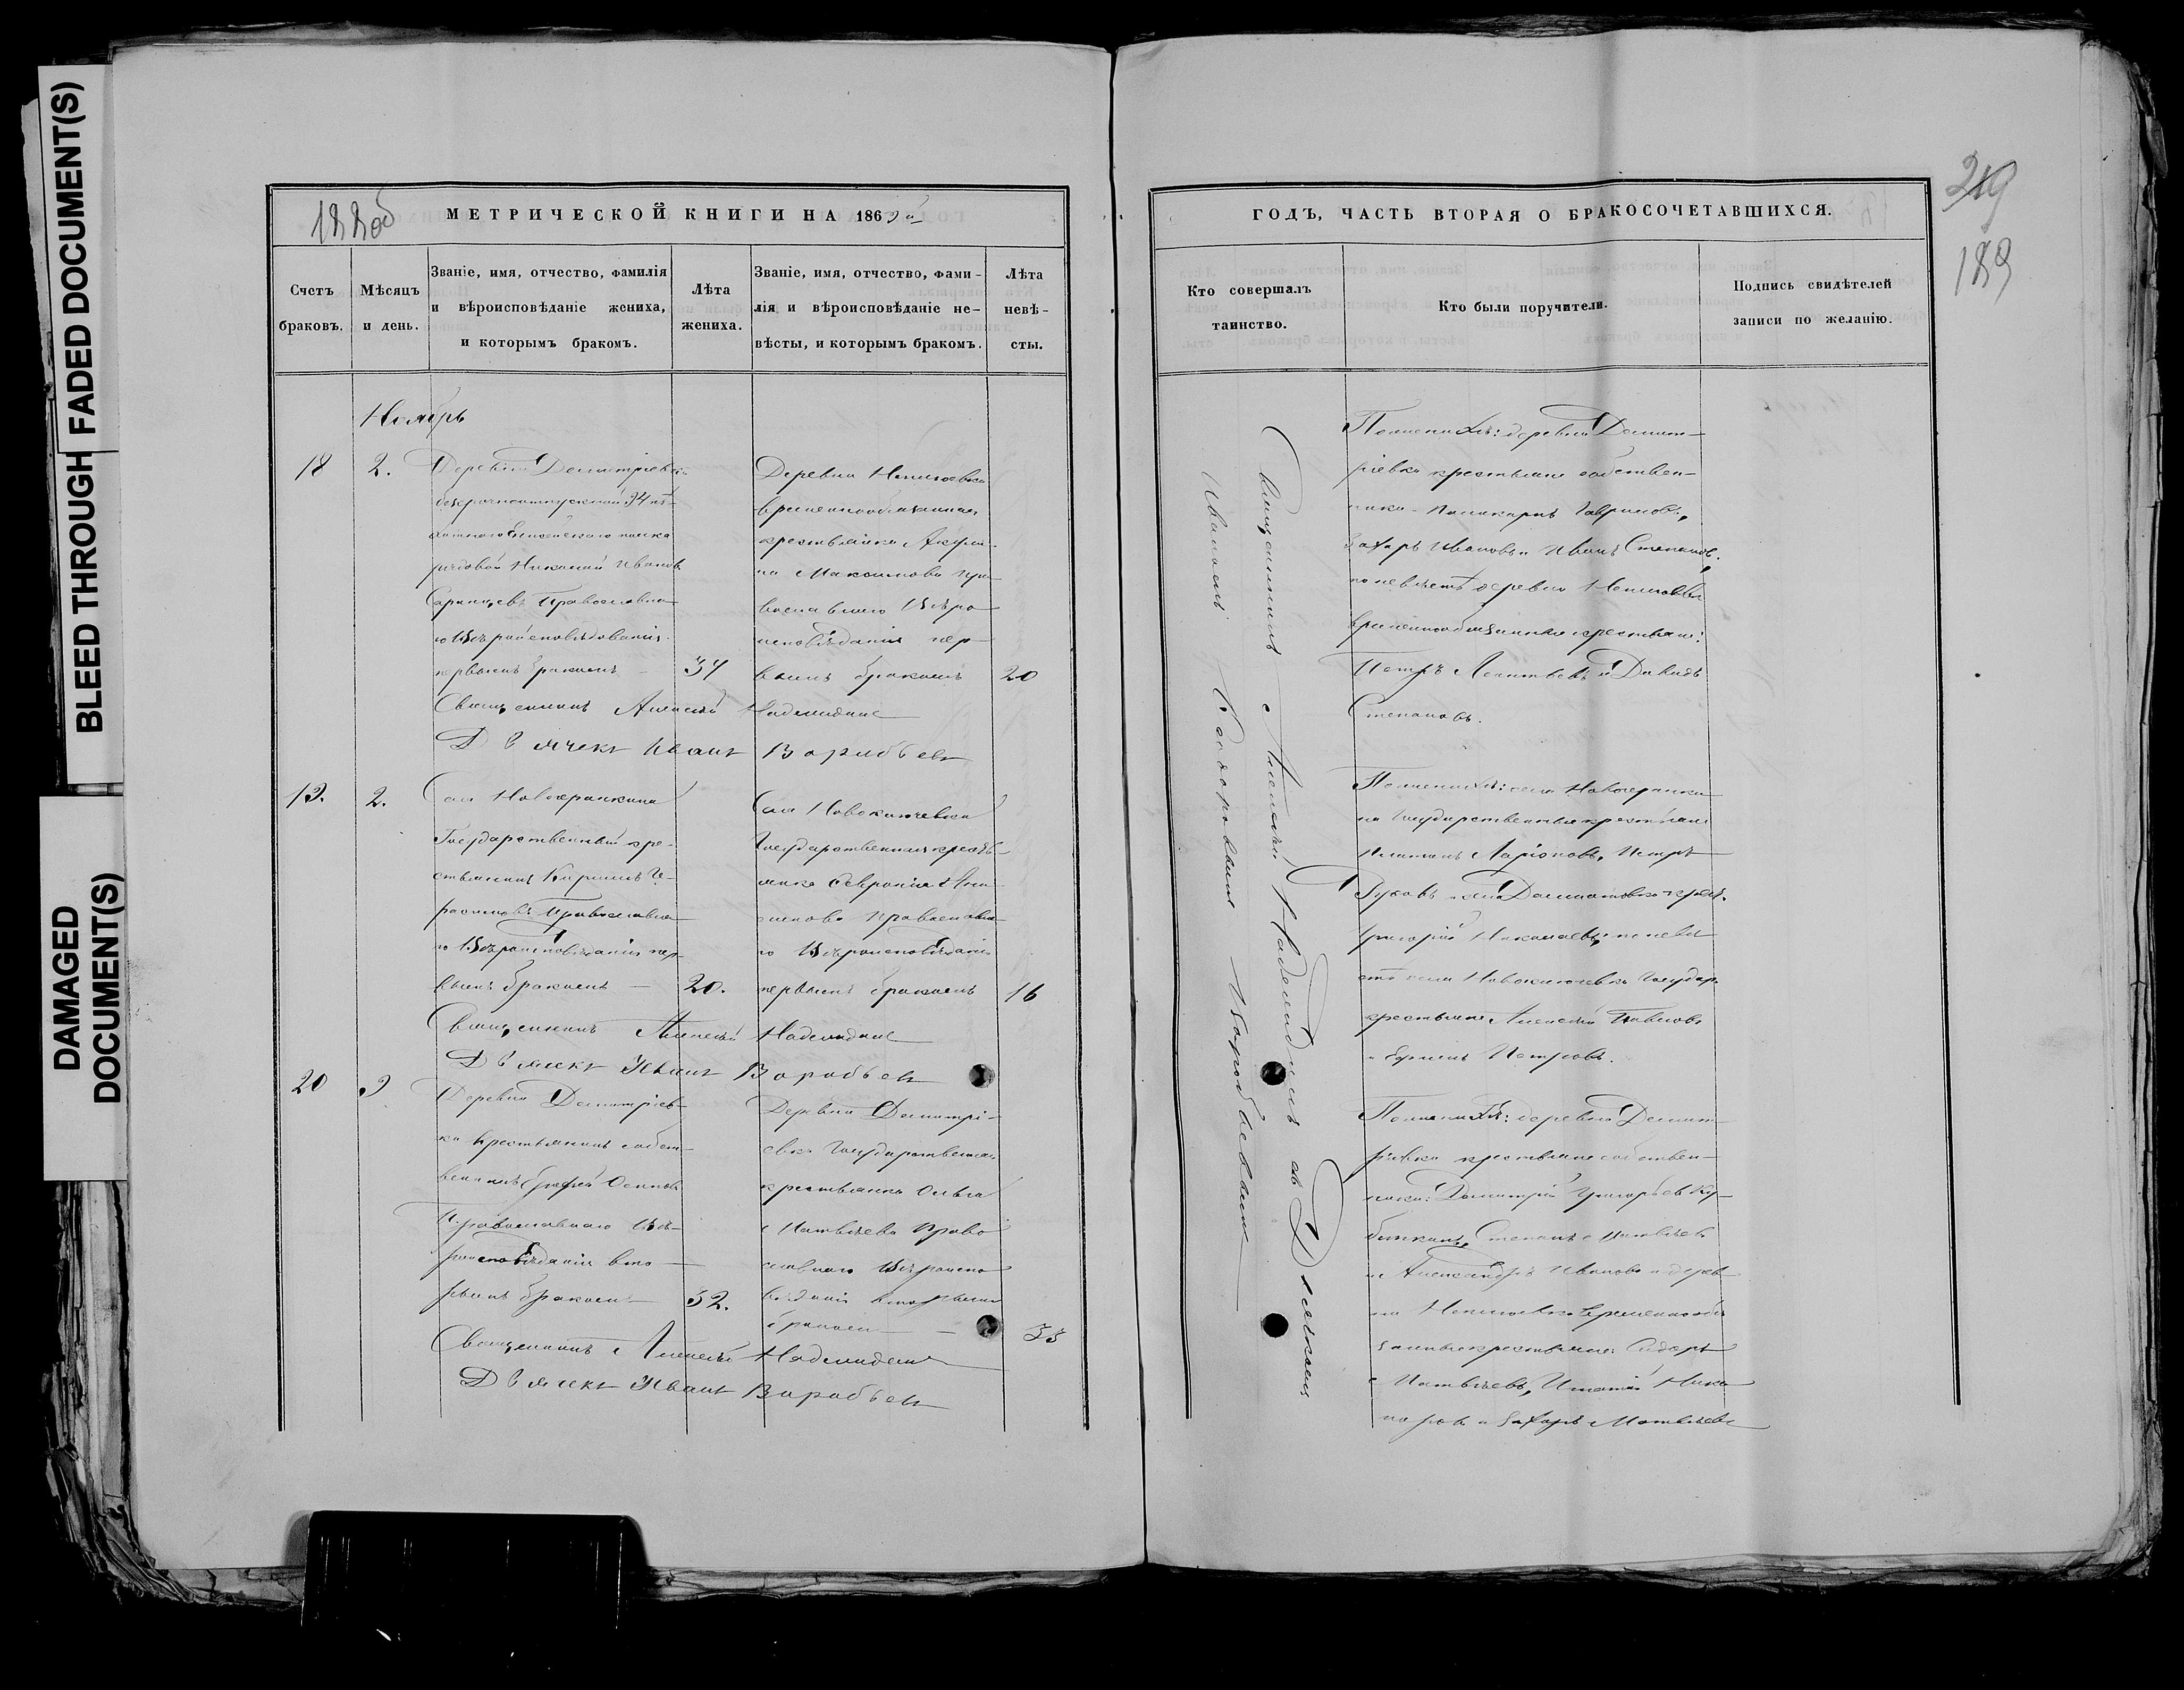 BLEED THROUGH FADED DOCUMENT(S)
DAMAGED
DOCUMENT(S)
188об
МЕТРИЧЕСКОЙ КНИГИ НА 1869й
Счетъ
браковъ.
Мѣсяцъ
и день.
Званіе, имя, отчество, фамилія
и вѣроисповѣданіе жениха,
и которымъ бракомъ.
Лѣта
жениха.
Званіе, имя, отчество, фами-
лія и вѣроисповѣданіе не-
вѣсты, и которымъ бракомъ.
Лѣта
невѣ-
сты.
Ноябрь
18
2.
Деревни Демитріевки
безсрочноотпускной 94 пѣ-
хотнаго Енисейскаго полка
рядовой Николай Ивановъ
Православна
го Вѣроисповѣдованія
первымъ бракомъ
34
Деревни
временнообязанная
крестьянка Акули-
на Максимова пра-
вославнаго Вѣро
исповѣданія пер-
вымъ бракомъ
20
Священникъ Алексѣй Надеждинъ
Дьячекъ Иванъ Воробьевъ
19.
2.
Села
Государственный кре-
стьянинъ Кирилъ Ге-
расимовъ Православна-
го Вѣроисповѣданія пер-
вымъ бракомъ —
20.
Села Новоключевки
Государственная кресть-
янка Февронія
Православна-
го Вѣроисповѣданія
первымъ бракомъ
16
Священникъ Алексѣй Надеждинъ
Дьячекъ Иванъ Воробьевъ
20
9
Деревни Демитріев-
ки Крестьянинъ собст-
венникъ Осиповъ
Православнаго Вѣ-
роисповѣданія вто-
рымъ бракомъ
32.
Деревни Димитрі-
евки Государственная
крестьянка Ольга
Матвѣева Право
славнаго Вѣроиспо
вѣданія вторымъ
бракомъ —
33
Священникъ Алексѣй Надеждинъ
Дьячекъ Иванъ Воробьевъ
ГОДЪ, ЧАСТЬ ВТОРАЯ О БРАКОСОЧЕТАВШИХСЯ.
219
189
Кто совершалъ
таинство.
Кто были поручители.
Подпись свидѣтелей
записи по желанію.
Священникъ Алексѣй Надеждинъ съ Дьячкомъ
Иваномъ Воробьевымъ
По женихѣ: деревни Демит-
ріевки крестьяне собствен-
ники Поликарпъ Гавриловъ,
Захаръ Ивановъ и Иванъ Степановъ;
по невѣстѣ деревни
временнообязанные крестьяне:
Петръ Леонтьевъ и Давидъ
Степановъ.
По женихѣ: села
на Государственные крестьяне
Платонъ Ларіоновъ, Петръ
Григорій Николаевъ; по невѣ
стѣ села Новоключевки Государ.
крестьяне Алексѣй Павловъ
и Ермилъ Петровъ.
По женихѣ: деревни Демит-
ріевки крестьяне собствен-
ники: Димитрій Григорьевъ
Степанъ Матвѣевъ
и Александръ Ивановъ и дерев-
ни временнооб
занные крестьяне: Сидоръ
Матвѣевъ, Игнатій Ника
норовъ и Захаръ Матвѣевъ